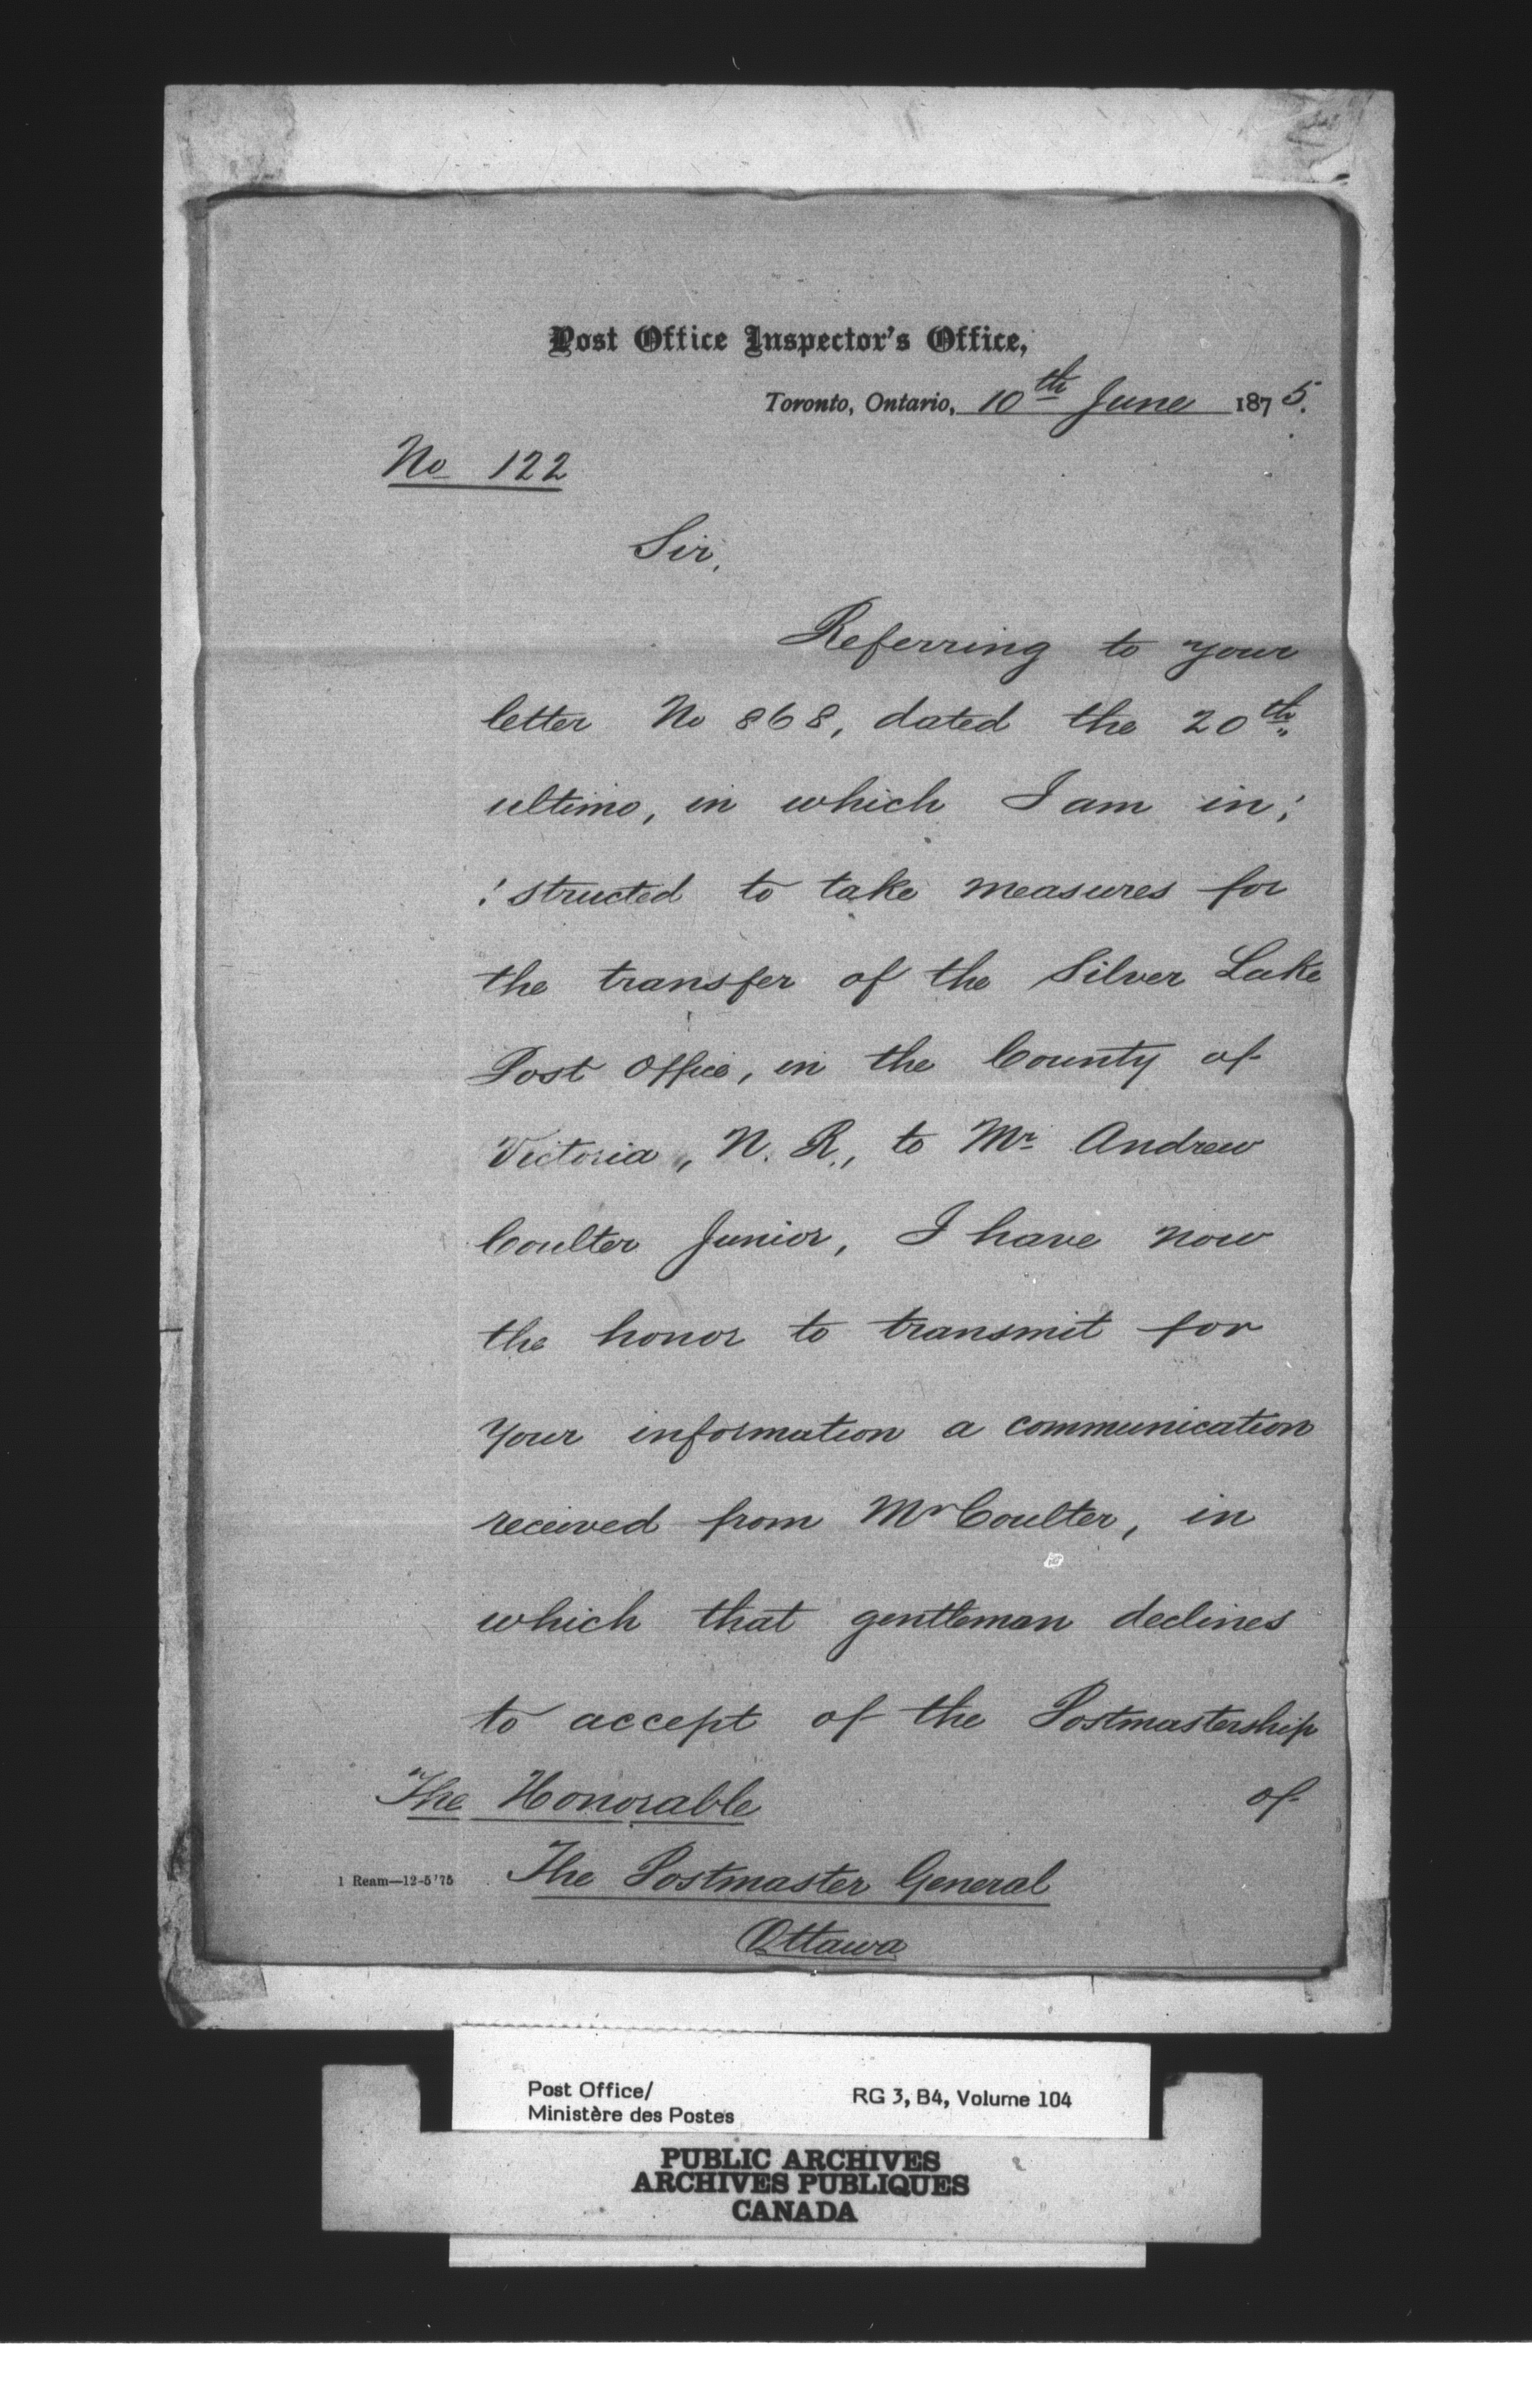 Post Office Inspector's Office,
Toronto, Ontario, 10th June 1875.
No 122
Sir,
Referring to your
letter No 868, dated the 20th
ultimo, in which I am in:
: structed to take measures for
the transfer of the Silver Lake
Post Office, in the County of
Victoria, N. R., to Mr Andrew
Coulter Junior, I have now
the honor to transmit for
your information a communication
received from Mr Coulter, in
which that gentleman declines
to accept of the Postmastership
of
The Honorable
The Postmaster General
Ottawa
1 Ream—12-5'75
Post Office/
Ministère des Postes
RG 3, B4, Volume 104
PUBLIC ARCHIVES
ARCHIVES PUBLIQUES
CANADA